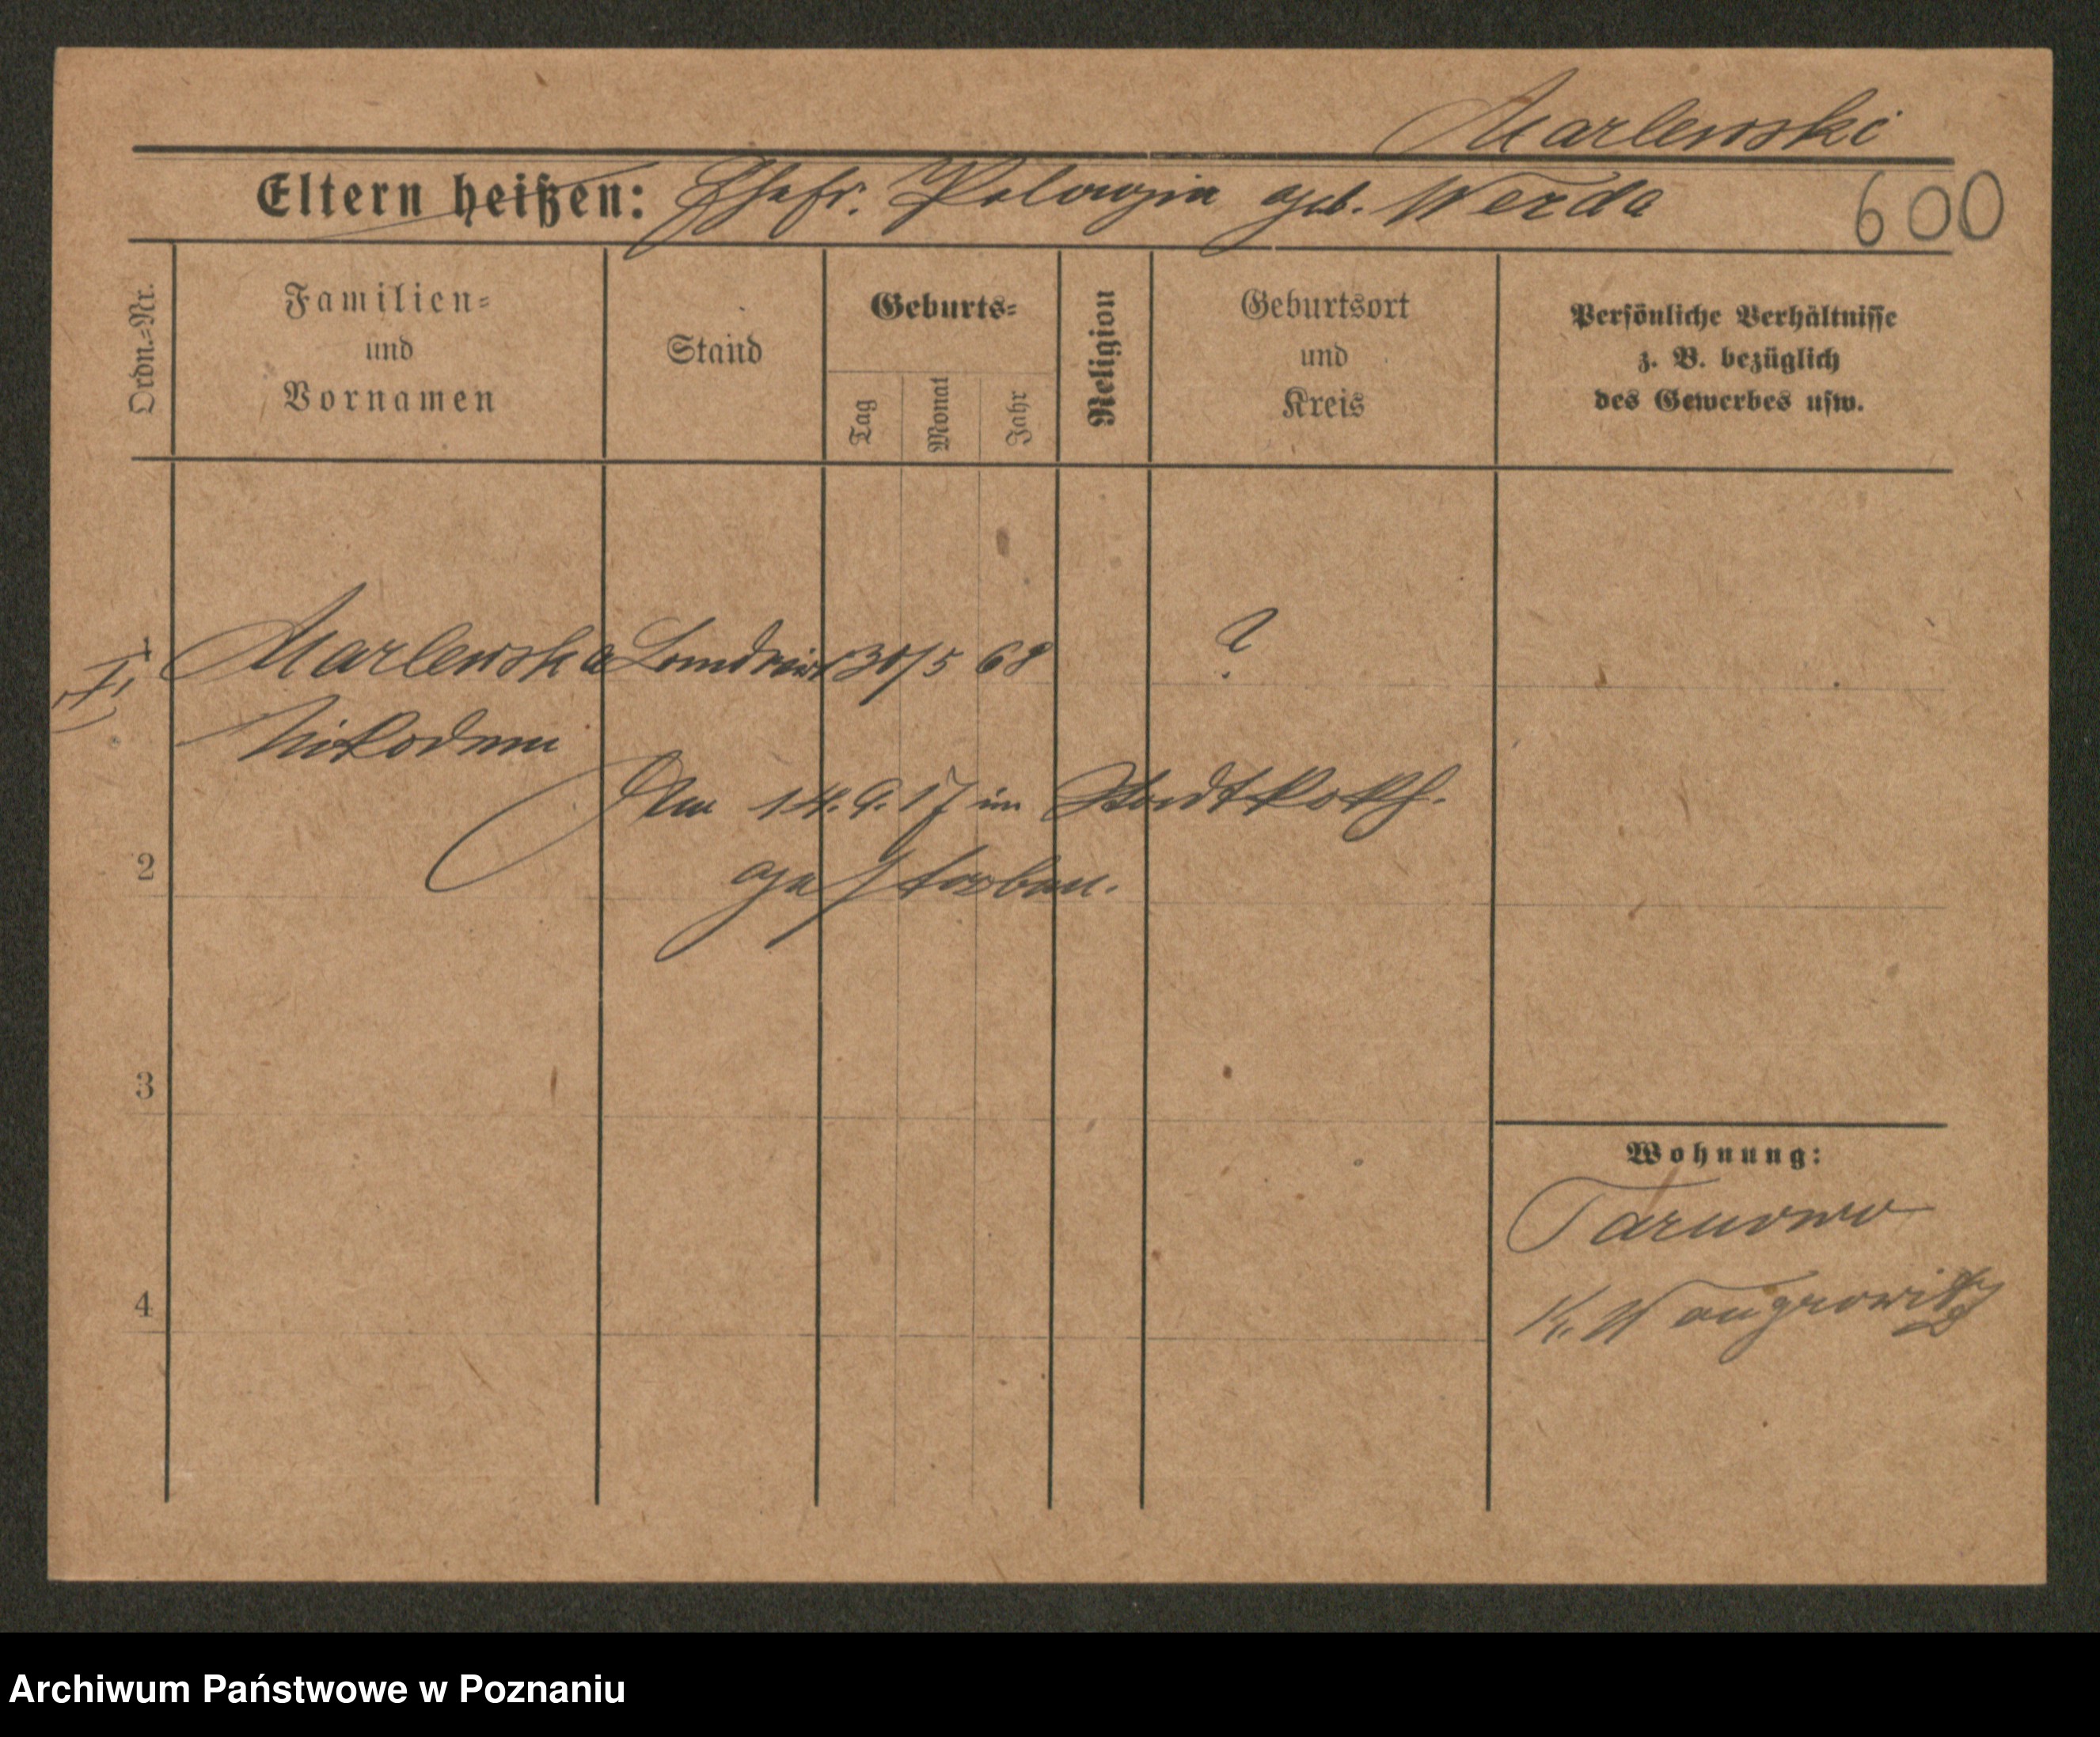 Marlewski
Eltern heißen: Ehefr. Pelagia geb. Werda
600
Ordn.=Nr.
Familien=
und
Vornamen
Stand
Geburts=
Tag
Monat
Jahr
Religion
Geburtsort
und
Kreis
Persönliche Verhältnisse
z. B. bezüglich
des Gewerbes usw.
1 Marlewski Landwirt 30/5 68 ?
Nikodem
Am 14.9.17 im Stadtkrkh.
gestorben.
2
3
4
Wohnung:
Tarnowo
K. Wongrowitz
Archiwum Państwowe w Poznaniu